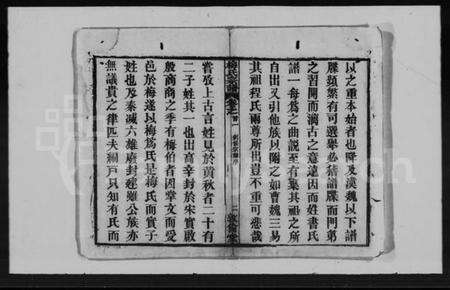 以之重本始者也降及漢魏以下譜
牒類案有可選舉必稽譜牒而門第
之習開而澆古之意遠因而姓書氏
譜一每爲之曲說至有棄其祖之所
自出又引他族以附之如曹魏三易
其祖程氏兩尊所出豈不重可悲哉
梅氏宗譜
卷首
嘗攷上古言姓見於黄秋者二十有
二子姓其一也出高辛封於宋實啟
殷商商之季有梅伯者因辜文而受
邑於梅遂以梅爲氏是梅氏而實子
姓也及秦滅六雄廢封建雖公族亦
無議貴之律匹夫編戸只知有氏而